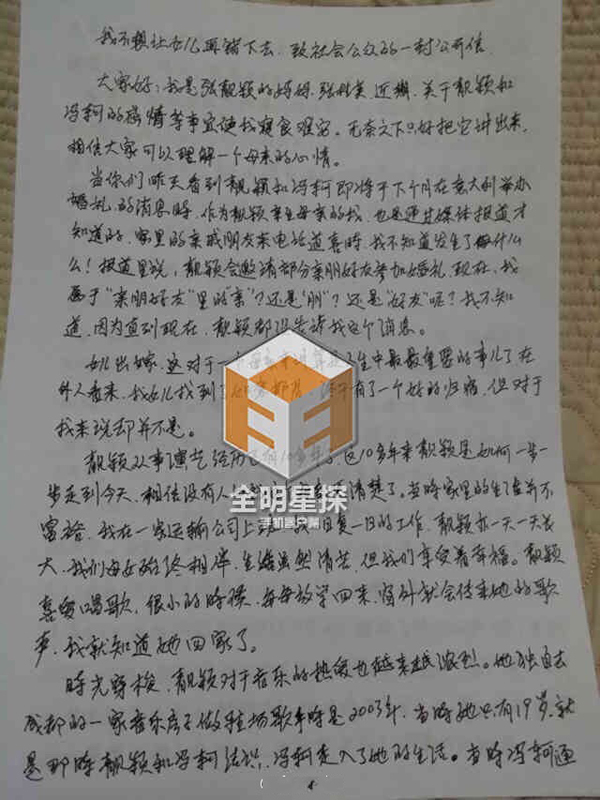 我不想让女儿再错下去 致社会公众的一封公开信
大家好：我是张靓颖的妈妈，张桂英 近期，关于靓颖和
冯轲的婚情等事宜使我寝食难安。无奈之下只好把它讲出来，
相信大家可以理解一个母亲的心情。
当你们昨天看到靓颖和冯轲即将于下个月在意大利举办
婚礼的消息时，作为靓颖亲生母亲的我，也是通过媒体报道才
知道的，家里的亲戚朋友来电话道喜时，我不知道发生了每什么
么！报道里说，靓颖会邀请部分亲朋好友参加婚礼，现在，我
属于“亲朋好友”里的“亲”？还是“朋”？还是“好友”呢？我不知
道，因为直到现在，靓颖都没告诉我这个消息。
女儿出嫁，这对于一个母亲来讲算是人生中最最重要的事儿了 在
外人看来，我女儿找到了 终于有了一个好的归宿，但对于
我来说却并不是。
靓颖从事演艺经历已有10多年了，这10多年来靓颖是如何一步一
步走到今天，相信没有人 清楚了。当时家里的生活并不
富裕，我在一家运输公司上班，我日复一日的工作，靓颖亦一天一天长
大，我们母女始终相伴，生活虽然清苦，但我们享受着幸福。靓颖
喜爱唱歌，很小的时候，每每放学回来，窗外就会传来她的歌
声，我就知道她回家了。
时光穿梭，靓颖对于音乐的热爱也越来越浓烈。她独自去
成都的一家音乐房子做驻场歌手时是2003年，当时她只有19岁，就
是那时靓颖和冯轲结识，冯轲走入了她的生活。当时冯轲通
全明星探
手机客户端